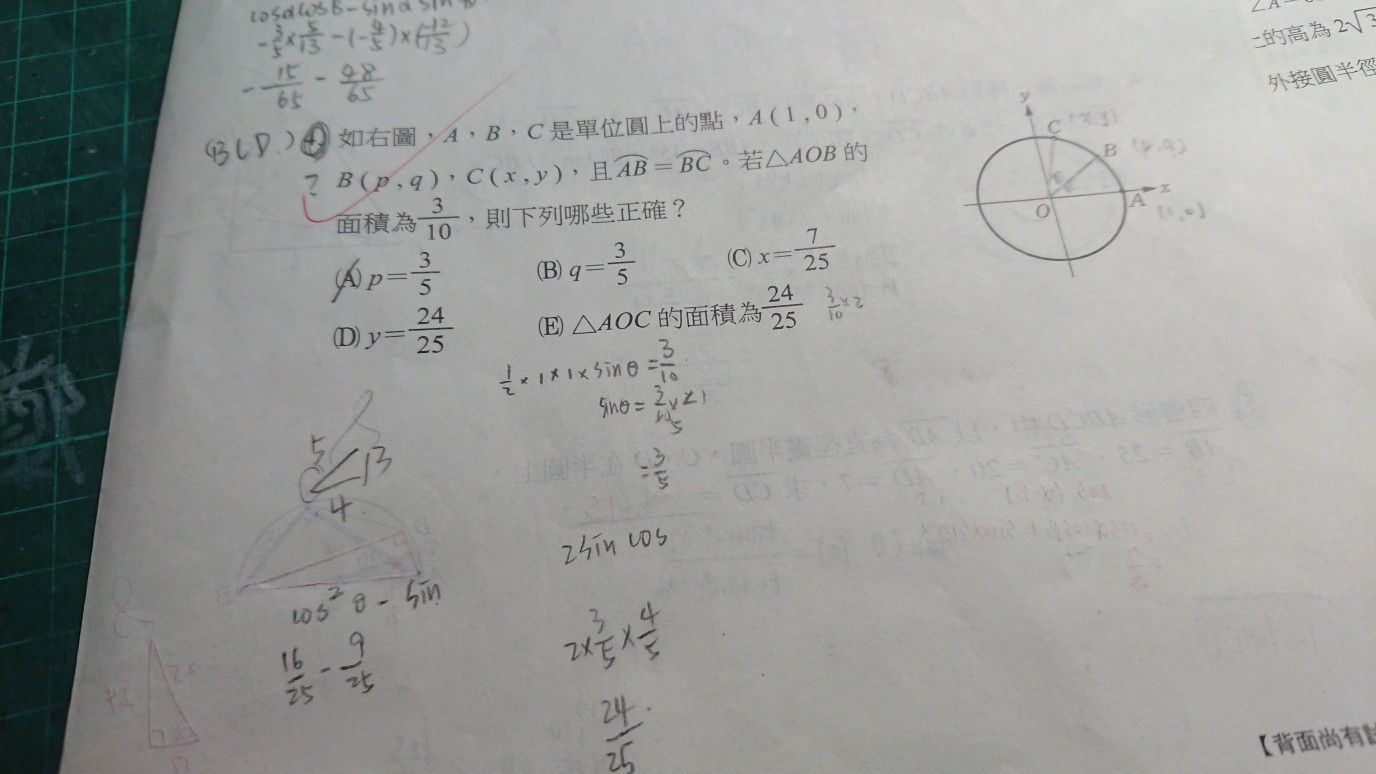 cosαcosβ-sinα sin
-3/5×5/13-(-4/5)×(-12/13)
-15/65-48/65
∠A=
上的高為2√3
外接圓半徑
(BCD.) 4. 如右圖，A，B，C是單位圓上的點，A(1,0)，
? B(p,q)，C(x,y)，且⌒AB=⌒BC。若△AOB的
面積為3/10，則下列哪些正確？
(A) p=3/5 (B) q=3/5 (C) x=7/25
(D) y=24/25 (E) △AOC的面積為24/25 3/10×2
y
C (x,y)
B (p,q)
x
O
A
(1,0)
1/2×1×1×sinθ=3/10
=3/5
5
3
4
2sin cos
cos²θ-sin
2×3/5×4/5
16/25-9/25
24/25
【背面尚有試